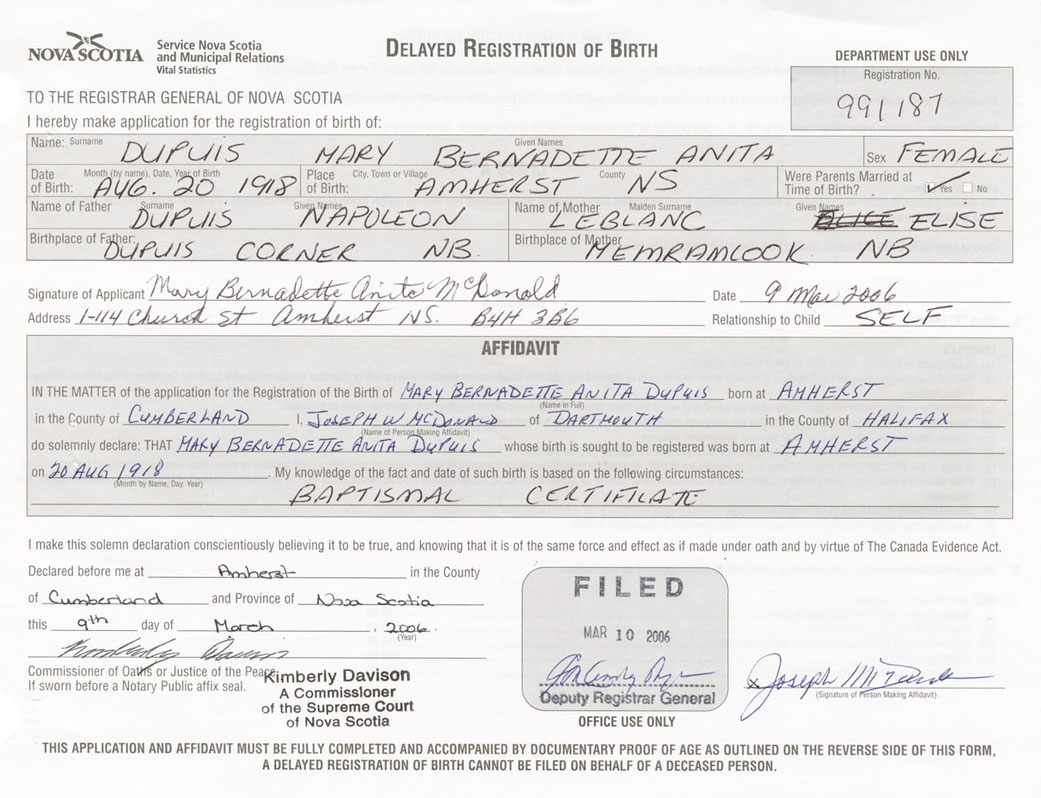 NOVA SCOTIA
Service Nova Scotia
and Municipal Relations
Vital Statistics
DELAYED REGISTRATION OF BIRTH
DEPARTMENT USE ONLY
Registration No.
991187
TO THE REGISTRAR GENERAL OF NOVA SCOTIA
I hereby make application for the registration of birth of:
Name: Surname DUPUIS Given Names MARY BERNADETTE ANITA Sex FEMALE
Date of Birth: Month (by name), Date, Year of Birth AUG. 20 1918 Place of Birth: City, Town or Village AMHERST County NS Were Parents Married at Time of Birth? ✓ Yes No
Name of Father Surname DUPUIS Given Names NAPOLEON Name of Mother Maiden Surname LEBLANC Given Names ALICE ELISE
Birthplace of Father: DUPUIS CORNER NB. Birthplace of Mother MEMRAMCOOK NB
Signature of Applicant Mary Bernadette Anita McDonald Date 9 Mar 2006
Address 1-114 Church St Amherst NS. B4H 3B6 Relationship to Child SELF
AFFIDAVIT
IN THE MATTER of the application for the Registration of Birth of MARY BERNADETTE ANITA DUPUIS born at AMHERST
(Name in Full)
in the County of CUMBERLAND I, JOSEPH W MCDONALD of DARTMOUTH in the County of HALIFAX
(Name of Person Making Affidavit)
do solemnly declare: THAT MARY BERNADETTE ANITA DUPUIS whose birth is sought to be registered was born at AMHERST
on 20 AUG 1918. My knowledge of the fact and date of such birth is based on the following circumstances:
(Month by Name, Day, Year)
BAPTISMAL CERTIFICATE
I make this solemn declaration conscientiously believing it to be true, and knowing that it is of the same force and effect as if made under oath and by virtue of The Canada Evidence Act.
Declared before me at Amherst in the County
of Cumberland and Province of Nova Scotia
this 9th day of March, 2006
(Year)
Kimberly Davison
Commissioner of Oaths or Justice of the Peace
If sworn before a Notary Public affix seal.
Kimberly Davison
A Commissioner
of the Supreme Court
of Nova Scotia
FILED
MAR 10 2006
Deputy Registrar General
OFFICE USE ONLY
x Joseph McDonald
(Signature of Person Making Affidavit)
THIS APPLICATION AND AFFIDAVIT MUST BE FULLY COMPLETED AND ACCOMPANIED BY DOCUMENTARY PROOF OF AGE AS OUTLINED ON THE REVERSE SIDE OF THIS FORM,
A DELAYED REGISTRATION OF BIRTH CANNOT BE FILED ON BEHALF OF A DECEASED PERSON.